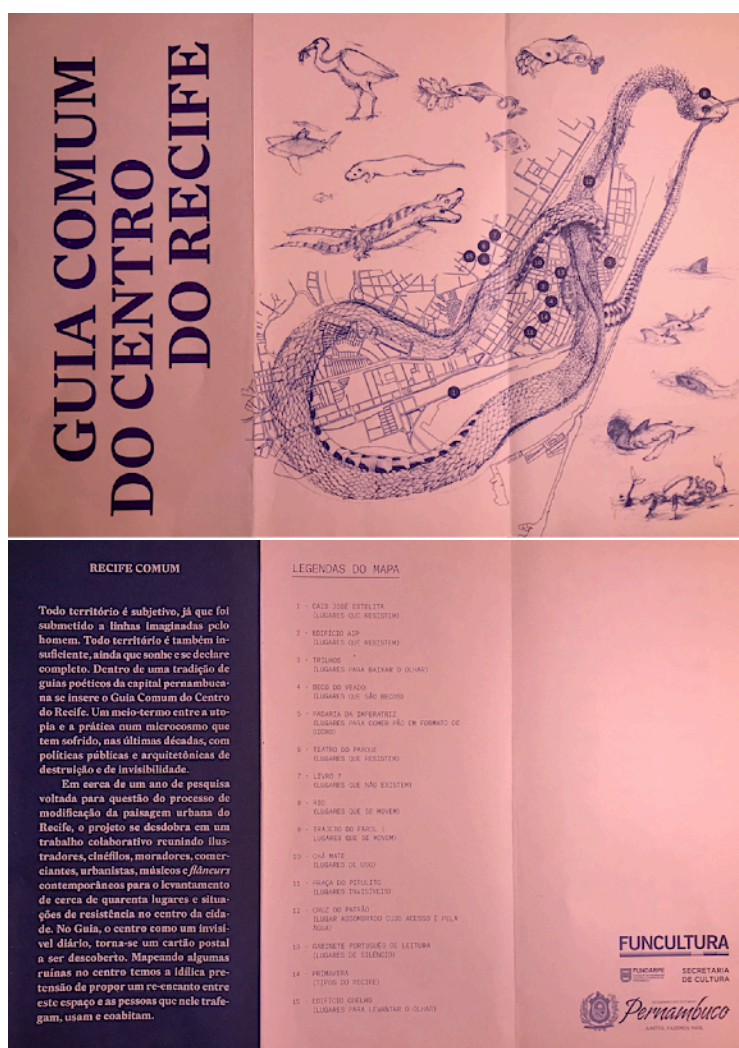 GUIA COMUM
DO CENTRO
DO RECIFE
RECIFE COMUM
Todo território é subjetivo, já que foi
submetido a linhas imaginadas pelo
homem. Todo território é também in-
suficiente, ainda que sonhe e se declare
completo. Dentro de uma tradição de
guias poéticos da capital pernambuca-
na se insere o Guia Comum do Centro
do Recife. Um meio-termo entre a uto-
pia e a prática num microcosmo que
tem sofrido, nas últimas décadas, com
políticas públicas e arquitetônicas de
destruição e de invisibilidade.
Em cerca de um ano de pesquisa
voltada para questão do processo de
modificação da paisagem urbana do
Recife, o projeto se desdobra em um
trabalho colaborativo reunindo ilus-
tradores, cinéfilos, moradores, comer-
ciantes, urbanistas, músicos e flâneurs
contemporâneos para o levantamento
de cerca de quarenta lugares e situa-
ções de resistência no centro da cida-
de. No Guia, o centro como um invisí-
vel diário, torna-se um cartão postal
a ser descoberto. Mapeando algumas
ruínas no centro temos a idílica pre-
tensão de propor um re-encanto entre
este espaço e as pessoas que nele trafe-
gam, usam e coabitam.
LEGENDAS DO MAPA
1 - CAIS JOSÉ ESTELITA
(LUGARES QUE RESISTEM)
2 - EDIFÍCIO AIP
(LUGARES QUE RESISTEM)
3 - TRILHOS
(LUGARES PARA BAIXAR O OLHAR)
4 - BECO DO VEADO
(LUGARES QUE SÃO BECOS)
5 - PADARIA DA IMPERATRIZ
(LUGARES PARA COMER PÃO EM FORMATO DE
6 - TEATRO DO PARQUE
(LUGARES QUE RESISTEM)
7 - LIVRO 7
(LUGARES QUE NÃO EXISTEM)
8 - RIO
(LUGARES QUE SE MOVEM)
9 - TRAJETO DO FAROL (
LUGARES QUE SE MOVEM)
10 - CHÁ MATE
(LUGARES DE USO)
11 - PRAÇA DO PITULITO
(LUGARES INVISÍVEIS)
12 - CRUZ DO PATRÃO
(LUGAR ASSOMBRADO CUJO ACESSO É PELA
ÁGUA)
13 - GABINETE PORTUGUÊS DE LEITURA
(LUGARES DE SILÊNCIO)
14 - PRIMAVERA
(TIPOS DO RECIFE)
15 - EDIFÍCIO COELHO
(LUGARES PARA LEVANTAR O OLHAR)
FUNCULTURA
FUNDARPE
SECRETARIA
DE CULTURA
Pernambuco
JUNTOS, FAZEMOS MAIS.